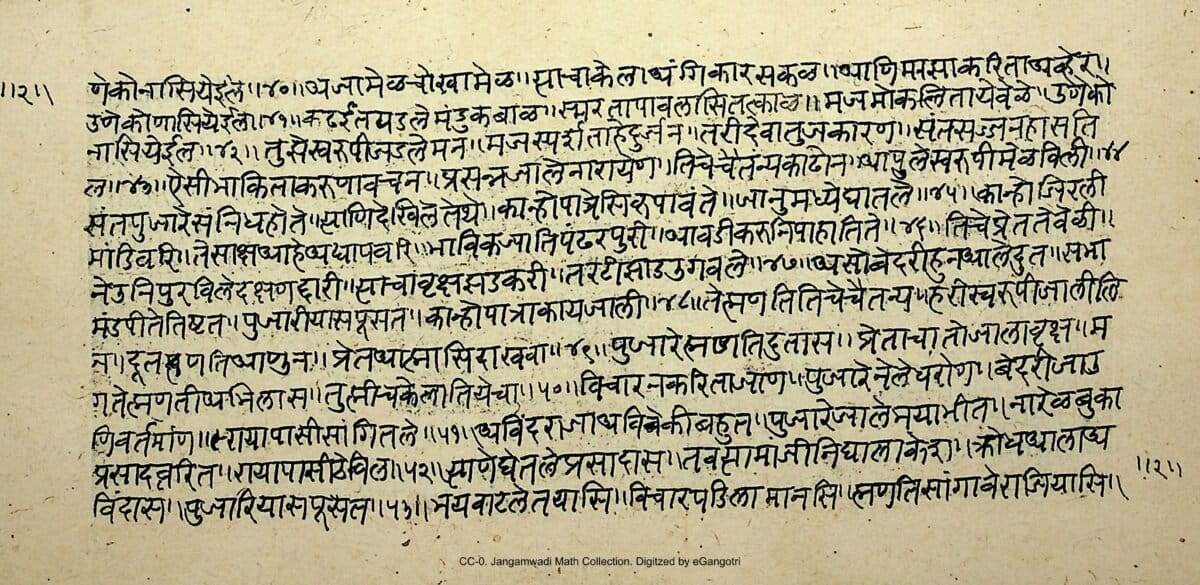 णेकोनासियेईले ॥४०॥ अजामेळचोखामेळ ॥ त्याचाकेलाअंगिकारसकळ ॥ आणिमासाकरिताअव्हेर ॥
उणेकोणासियेईले ॥४१॥ कढईतपडलेमंडुकबाळ ॥ स्मरतापावलासितत्काळ ॥ मजमोकलितायेवेळे ॥ उणेको
नासियेईल ॥४२॥ तुसेस्वरूपीजडलेमन ॥ मजस्पर्शताहेदुर्जन ॥ तरीदेवातुजकारण ॥ संतसज्जनहासति
ल ॥४३॥ ऐसीभाकिताकरुणावचन ॥ प्रसन्नजालेनारायेण ॥ तिचेचैतन्यकाढोन ॥ आपुलेस्वरूपीमेळविली ॥४४
संतपुजारेसंनिधहोते ॥ त्याणिदेखिलेतेथे ॥ कान्होपात्रेसिकृपावंते ॥ जानुमध्येघातले ॥४५॥ कान्होजिरली
मांडिवरि ॥ तेसाक्षआहेअद्यापवरि ॥ भाविकजातिपंढरपुरी ॥ आवडीकरुनिपाहातिते ॥४६॥ तिचेप्रेततेवेळी ॥
नेउनिपुरविलेदक्षणद्वारी ॥ त्याचावृक्षझडकरी ॥ तरटीझाडउगवले ॥४७॥ असोबेदरीहुनआलेदुत ॥ सभा
मंडपीतेतिष्टत ॥ पुजारीयासपुसत ॥ कान्होपात्राकायजाली ॥४८॥ तेह्मणतितिचेचैतन्य ॥ हरीस्वरूपीजालीलि
न ॥ दूतह्मणतिआणुन ॥ प्रेतआह्मासिदाखवा ॥४९॥ पुजारेह्मणतिदुतास ॥ प्रेताचातोजालावृक्ष ॥ म
गतेह्मणतीअभिलास ॥ तुह्मीचकेलातियेचा ॥५०॥ विचारनकरिताजाण ॥ पुजारेनेलेधरोण ॥ बेदरीजाउ
णिवर्तमांण ॥ रायापासीसांगितले ॥५१॥ अविंदराजाअविवेकीबहुत ॥ पुजारेजालेभयाभीत ॥ नारेळबुका
प्रसादत्वरित ॥ रायापासीठेविला ॥५२॥ त्याणेघेतलेप्रसादास ॥ तवत्यामाजीनिघालाकेश ॥ क्रोधआलाअ
विंदास ॥ पुजारियासपूसेल ॥५३॥ भयवाटलेतयासि ॥ विचारपडिलामानसि ॥ ह्मणतिसांगावेराजियासि ॥
॥२॥
॥२॥
CC-0. Jangamwadi Math Collection. Digitzed by eGangotri